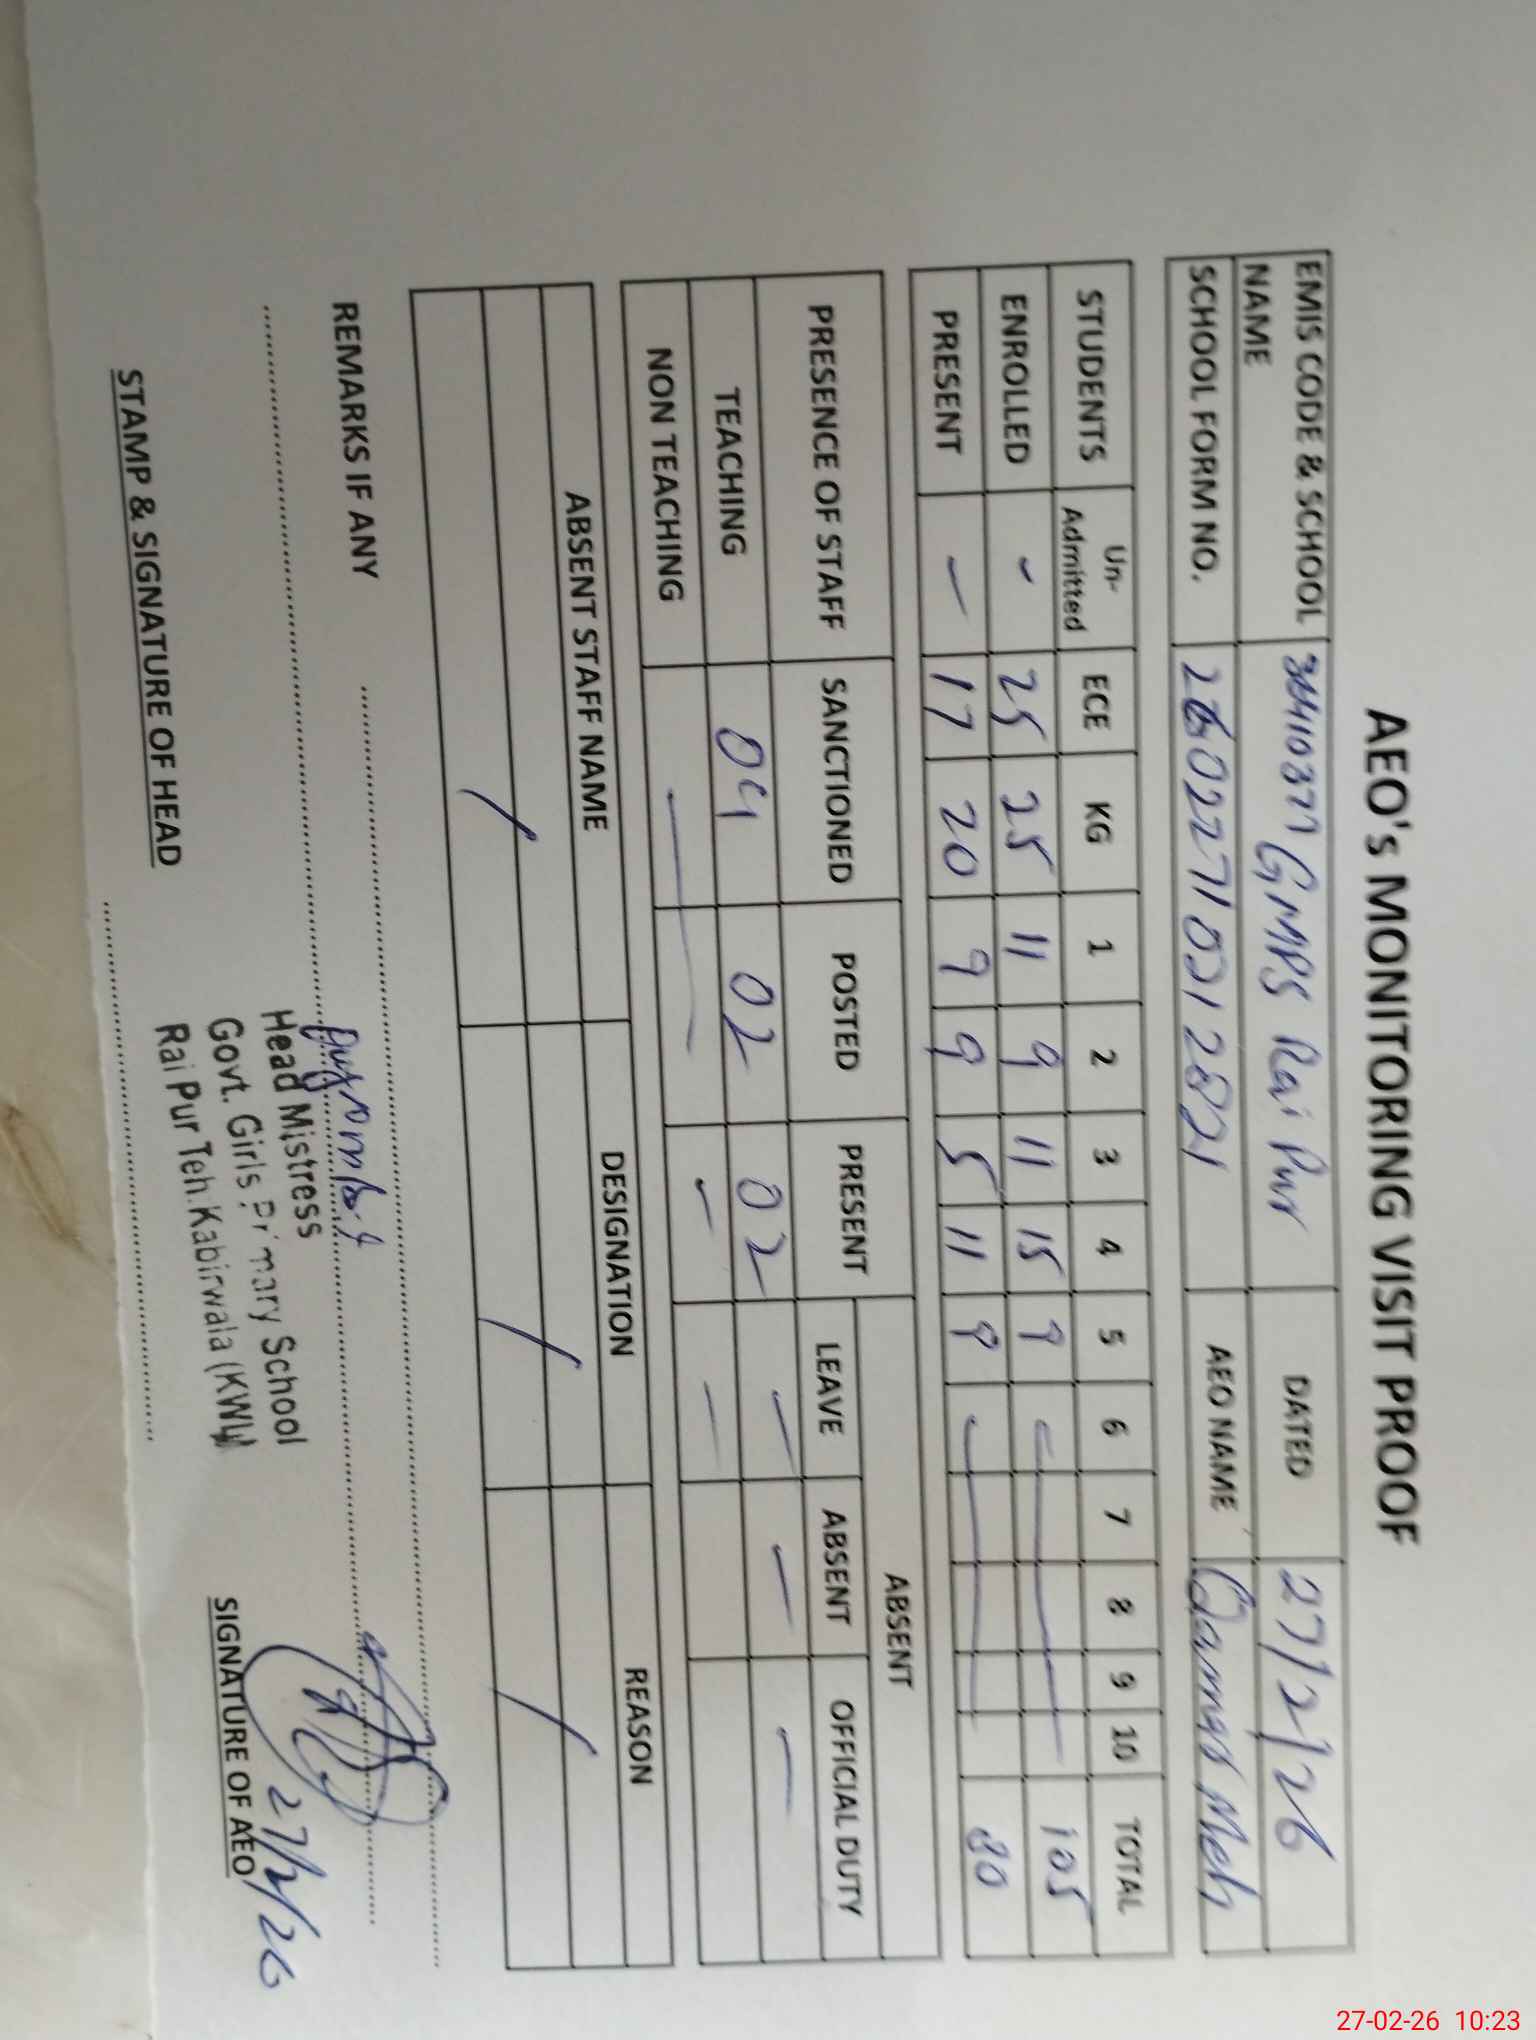 AEO's MONITORING VISIT PROOF
EMIS CODE & SCHOOL NAME GMPS Rai Pur DATED 27/2/26
SCHOOL FORM NO. AEO NAME
STUDENTS Un-Admitted ECE KG 1 2 3 4 5 6 7 8 9 10 TOTAL
ENROLLED - 25 25 11 9 11 15 9 105
PRESENT - 17 20 9 9 5 11 9 80
PRESENCE OF STAFF SANCTIONED POSTED PRESENT ABSENT
LEAVE ABSENT OFFICIAL DUTY
TEACHING 04 02 02 - - -
NON TEACHING - - - -
ABSENT STAFF NAME DESIGNATION REASON
REMARKS IF ANY
Head Mistress
Govt. Girls Primary School
Rai Pur Teh. Kabirwala (KWL)
STAMP & SIGNATURE OF HEAD
SIGNATURE OF AEO
27/2/26
27-02-26 10:23